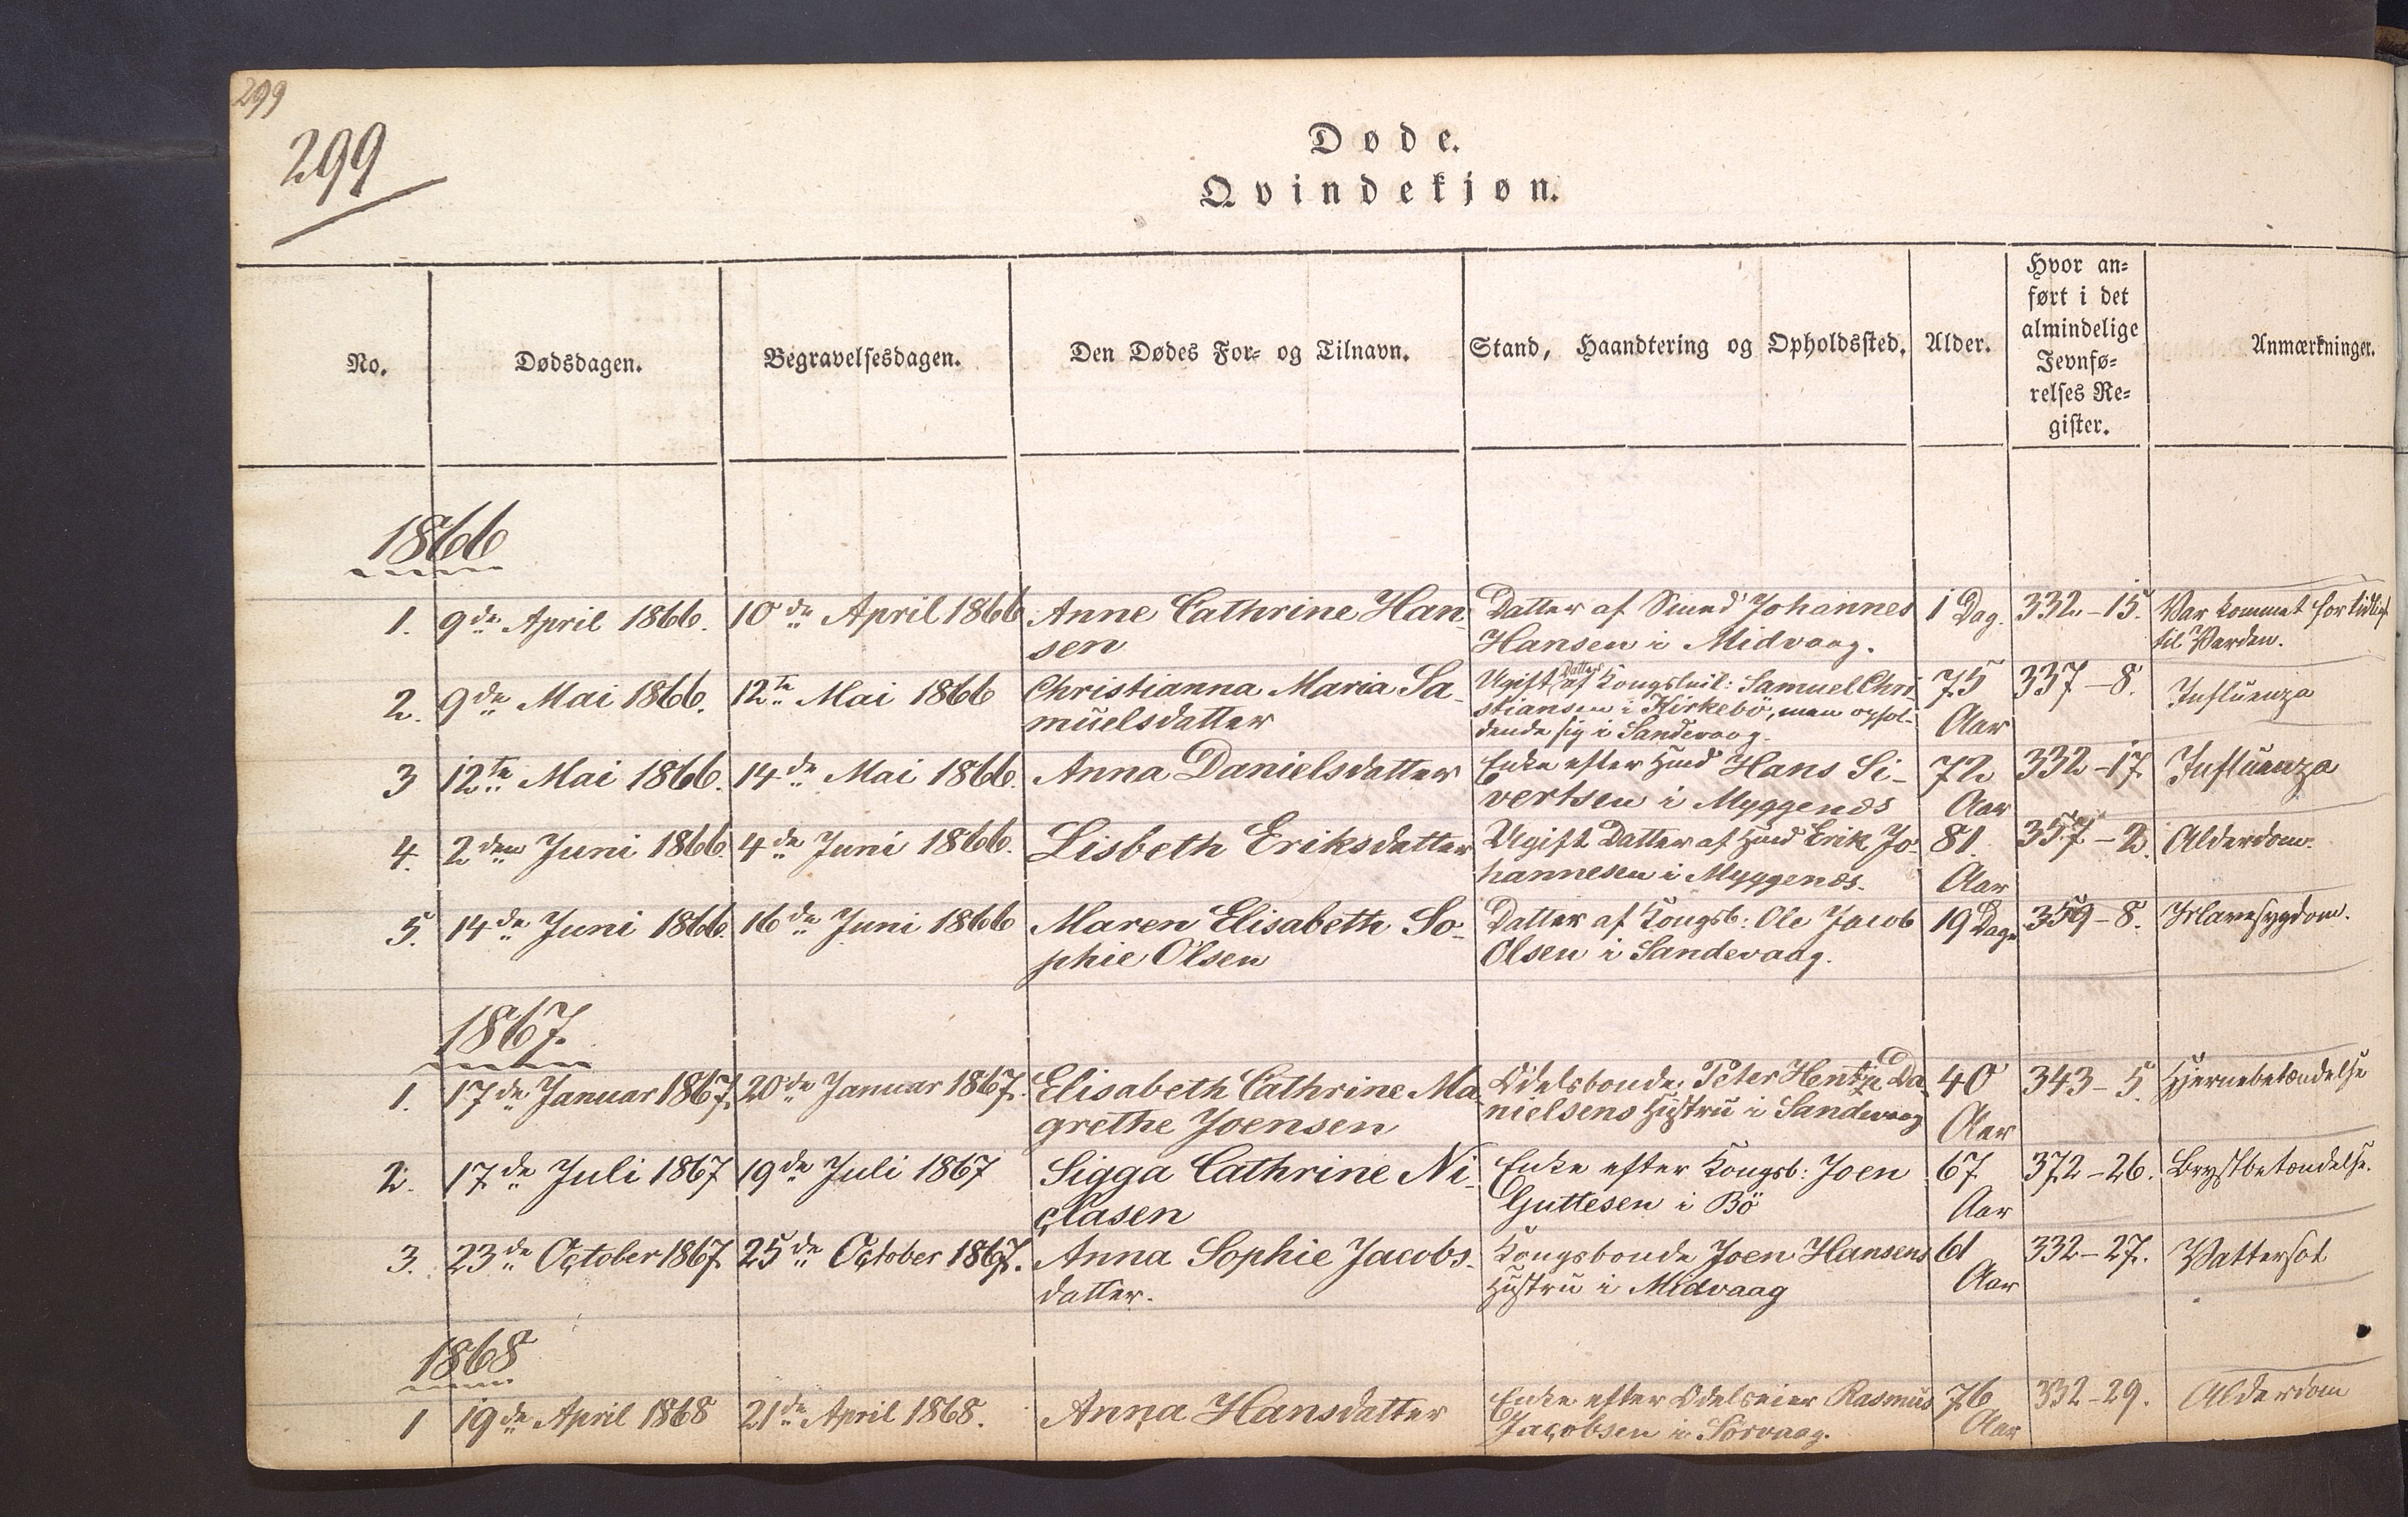 299
299
Døde.
Qvindekjøn.
No.
Dødsdagen.
Begravelsesdagen.
Den Dødes For- og Tilnavn.
Stand, Haandtering og Opholdssted.
Alder.
Hvor an-
ført i det
almindelige
Jevnfø-
relses Re-
gister.
Anmærkninger.
1866
1. 9de April 1866. 10de April 1866 Anne Cathrine Han- Datter af Smed Johannes 1 Dag. 332-15. Var kommet for tidligt
sen Hansen i Midvaag. til Verden.
2. 9de Mai 1866. 12te Mai 1866 Christianna Maria Sa- Ugift Datter af Kongsleil: Samuel Chri- 75 337-8. Influenza
muelsdatter stiansen i Kirkebö, men ophol- Aar
dende sig i Sandevaag.
3 12te Mai 1866. 14de Mai 1866. Anna Danielsdatter Enke efter Huusmd Hans Si- 72 332-17 Influenza
vertsen i Myggenæs Aar
4. 2den Juni 1866. 4de Juni 1866. Lisbeth Eriksdatter Ugift Datter af Erik Jo- 81. 357-2. Alderdom.
hannesen i Myggenæs. Aar
5. 14de Juni 1866. 16de Juni 1866 Maren Elisabeth So- Datter af Kongsb: Ole Jacob 19 Dage 359-8. Mavesygdom.
phie Olsen Olsen i Sandevaag.
1867.
1. 17de Januar 1867. 20de Januar 1867. Elisabeth Cathrine Ma- Odelsbonde Peter Hentze Da- 40 343-5. Hjernebetændelse
grethe Joensen nielsens Hustru i Sandevaag Aar
2. 17de Juli 1867 19de Juli 1867 Sigga Cathrine Ni- Enke efter Kongsb: Joen 67 372-26. Brystbetændelse.
clasen Guttesen i Bö Aar
3. 23de October 1867 25de October 1867. Anna Sophie Jacobs- Kongsbonde Joen Hansens 61 332-27. Vattersot
datter. Hustru i Midvaag Aar
1868
1 19de April 1868 21de April 1868. Anna Hansdatter Enke efter Odelseier Rasmus 76 332-29. Alderdom
Jacobsen i Sörvaag. Aar